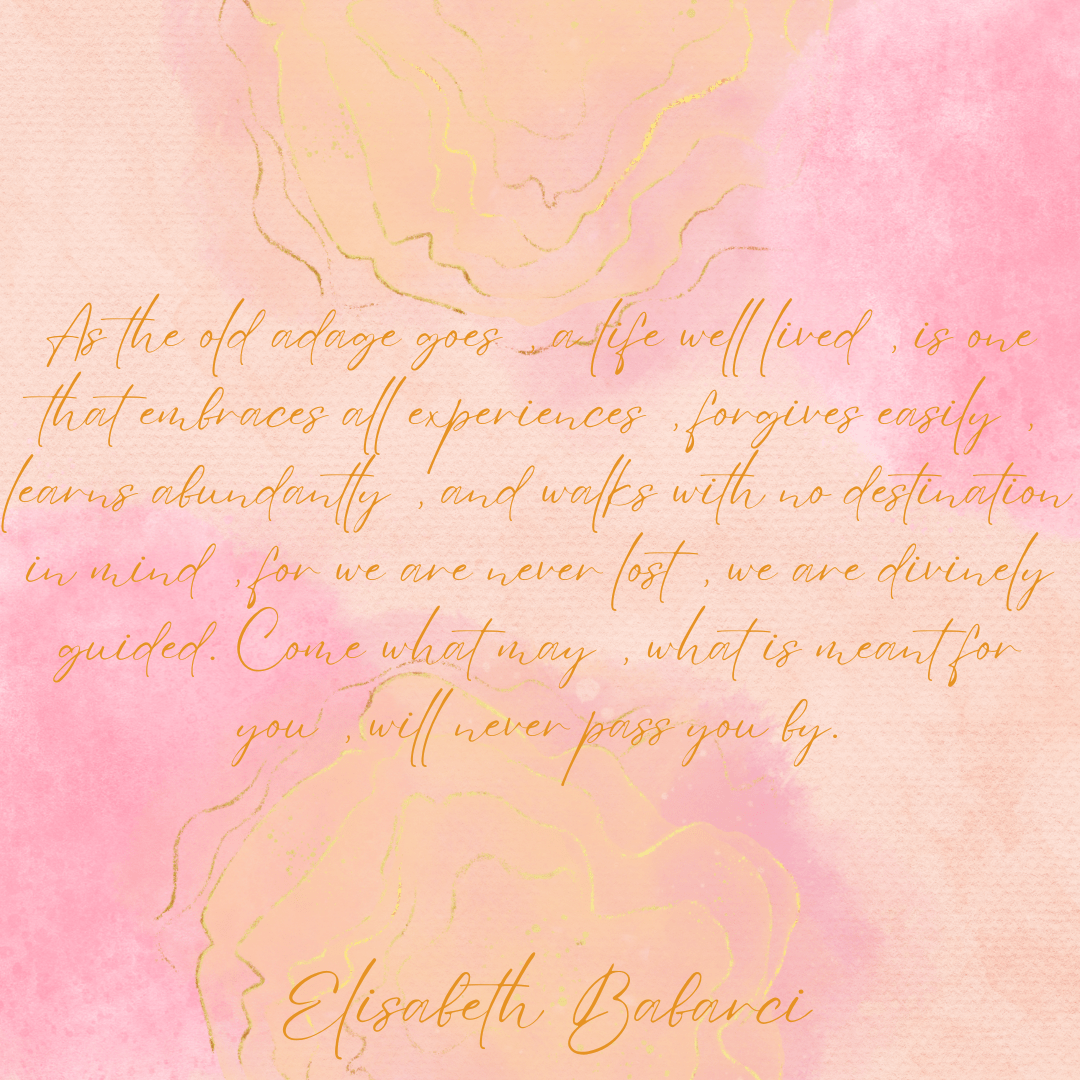 As the old adage goes , a life well lived , is one
that embraces all experiences , forgives easily ,
learns abundantly , and walks with no destination
in mind , for we are never lost , we are divinely
guided. Come what may , what is meant for
you , will never pass you by.
Elisabeth Babarci